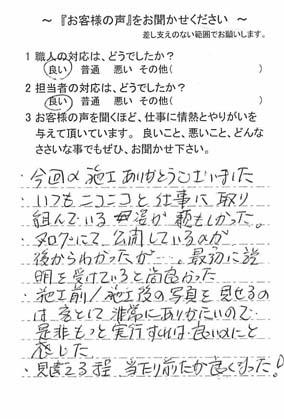 ～ 『お客様の声』をお聞かせください ～
差し支えのない範囲でお願いします。
1 職人の対応は、どうでしたか？
良い 普通 悪い その他( )
2 担当者の対応は、どうでしたか？
良い 普通 悪い その他( )
3 お客様の声を聞くほど、仕事に情熱とやりがいを
与えて頂いています。 良いこと、悪いこと、どんな
ささいな事でもぜひ、お聞かせ下さい。
・今回の施工ありがとうございました
・いつもニコニコと仕事に取り
組んでいる姿が頼もしかった。
・ブログにて、公開しているのが
後からわかったが…。最初に説
明を受けていると尚良かった
・施工前/施工後の写真を見せるの
は 客として 非常にありがたいので
是非もっと実行すれば良いのにと
感じた
・見違える程、当たり前だが良くなった!